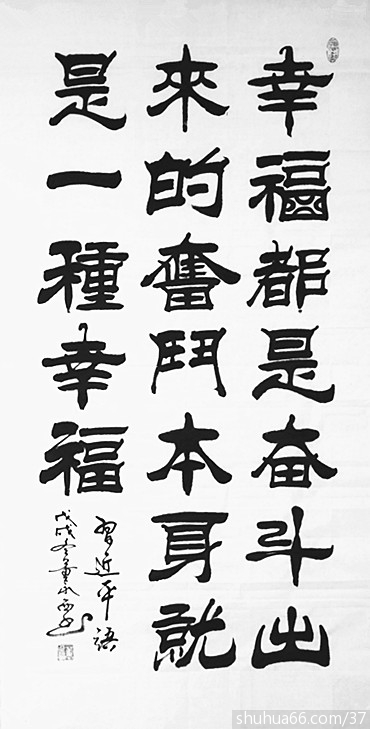 幸福都是奋斗出
來的奮鬥本身就
是一種幸福
習近平語
戊戌冬
shuhua66.com/37